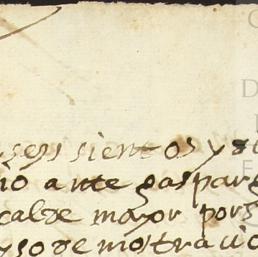 seys sientos y
ante gaspar
calde mayor por
yso demostracio